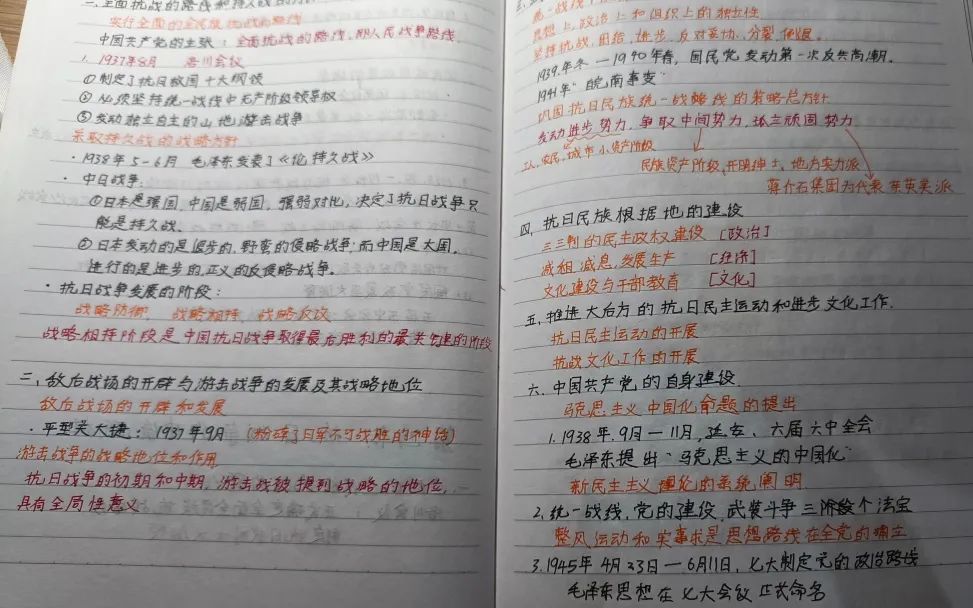 一、全面抗战的路线和持久战的
实行全面的全民族抗战的路线
中国共产党的主张：全面抗战的路线，即人民战争路线
1. 1937年8月 洛川会议
①制定了抗日救国十大纲领
②必须坚持统一战线中无产阶级领导权
③发动独立自主的山地游击战争
采取持久战的战略方针
·1938年5-6月 毛泽东发表了《论持久战》
·中日战争：
①日本是强国，中国是弱国，强弱对比，决定了抗日战争只
能是持久战。
②日本发动的是退步的，野蛮的侵略战争，而中国是大国。
进行的是进步的，正义的反侵略战争。
·抗日战争发展的阶段：
战略防御 战略相持 战略反攻
战略相持阶段是中国抗日战争取得最后胜利的最关键的阶段
二、敌后战场的开辟与游击战争的发展及其战略地位
敌后战场的开辟和发展
·平型关大捷：1937年9月（粉碎了日军不可战胜的神话）
游击战争的战略地位和作用
抗日战争的初期和中期，游击战被提到战略的地位，
具有全局性意义
统一战线
思想上，政治上和组织上的独立性
坚持抗战，团结，进步，反对妥协，分裂，倒退。
1939年冬—1940年春，国民党发动第一次反共高潮。
1941年“皖南事变”
巩固抗日民族统一战略线的策略总方针
发动进步势力，争取中间势力，孤立顽固势力
工人，农民，城市小资产阶级
民族资产阶级，开明绅士，地方实力派
蒋介石集团为代表亲英美派
四、抗日民族根据地的建设
三三制的民主政权建设 [政治]
减租减息，发展生产 [经济]
文化建设与干部教育 [文化]
五、推进大后方的抗日民主运动和进步文化工作.
抗日民主运动的开展
抗战文化工作的开展
六、中国共产党的自身建设
马克思主义中国化命题的提出
1. 1938年.9月—11月，延安、六届六中全会
毛泽东提出“马克思主义的中国化”
新民主主义理论的系统阐明
2. 统一战线，党的建设，武装斗争三个法宝
整风运动和实事求是思想路线在全党的确立
3. 1945年4月23日—6月11日，七大制定党的政治路线
毛泽东思想在七大会议正式命名